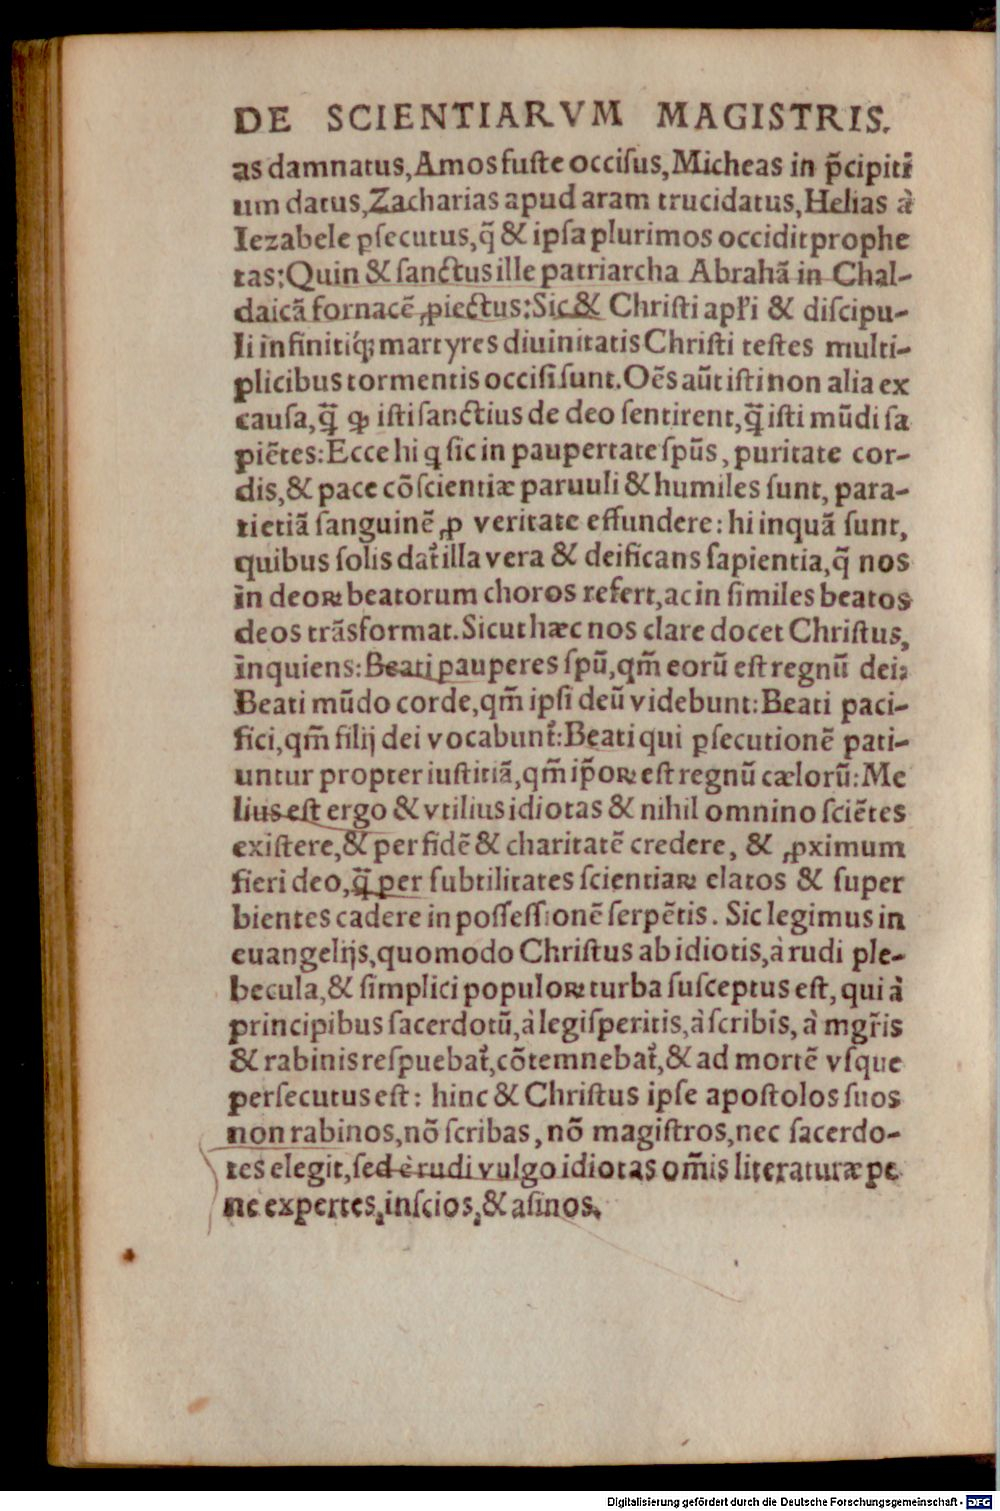 DE SCIENTIARVM MAGISTRIS.
as damnatus, Amos fuste occisus, Micheas in p̄cipiti
um datus, Zacharias apud aram trucidatus, Helias à
Iezabele ꝑsecutus, q̄ & ipsa plurimos occidit prophe
tas: Quin & sanctus ille patriarcha Abrahã in Chal-
daicã fornacẽ ꝓiectus: Sic & Christi apl'i & discipu-
li infinitiq́ꝫ martyres diuinitatis Christi testes multi-
plicibus tormentis occisi sunt. Oẽs aũt isti non alia ex
causa, q̃ꝫ ꝙ isti sanctius de deo sentirent, q̃ꝫ isti mũdi sa
piẽtes: Ecce hi q sic in paupertate spũs, puritate cor-
dis, & pace cõscientiæ paruuli & humiles sunt, para-
ti etiã sanguinẽ ꝓ veritate effundere: hi inquã sunt,
quibus solis dat' illa vera & deificans sapientia, q̃ nos
in deoꝝ beatorum choros refert, ac in similes beatos
deos trãsformat. Sicut hæc nos clare docet Christus,
inquiens: Beati pauperes spũ, qm̃ eorũ est regnũ dei:
Beati mũdo corde, qm̃ ipsi deũ videbunt: Beati paci-
fici, qm̃ filij dei vocabunt': Beati qui ꝑsecutionẽ pati-
untur propter iustitiã, qm̃ ip̃oꝝ est regnũ cælorũ: Me
lius est ergo & vtilius idiotas & nihil omnino sciẽtes
existere, & per fidẽ & charitatẽ credere, & ꝓximum
fieri deo, q̃ꝫ per subtilitates scientiaꝝ elatos & super
bientes cadere in possessionẽ serpẽtis. Sic legimus in
euangelijs, quomodo Christus ab idiotis, à rudi ple-
becula, & simplici populoꝝ turba susceptus est, qui à
principibus sacerdotũ, à legisperitis, à scribis, à mgr̃is
& rabinis respuebat', cõtemnebat', & ad mortẽ vsque
persecutus est: hinc & Christus ipse apostolos suos
non rabinos, nõ scribas, nõ magistros, nec sacerdo-
tes elegit, sed è rudi vulgo idiotas om̃is literaturæ pe
ne expertes, inscios, & asinos.
Digitalisierung gefördert durch die Deutsche Forschungsgemeinschaft - DFG